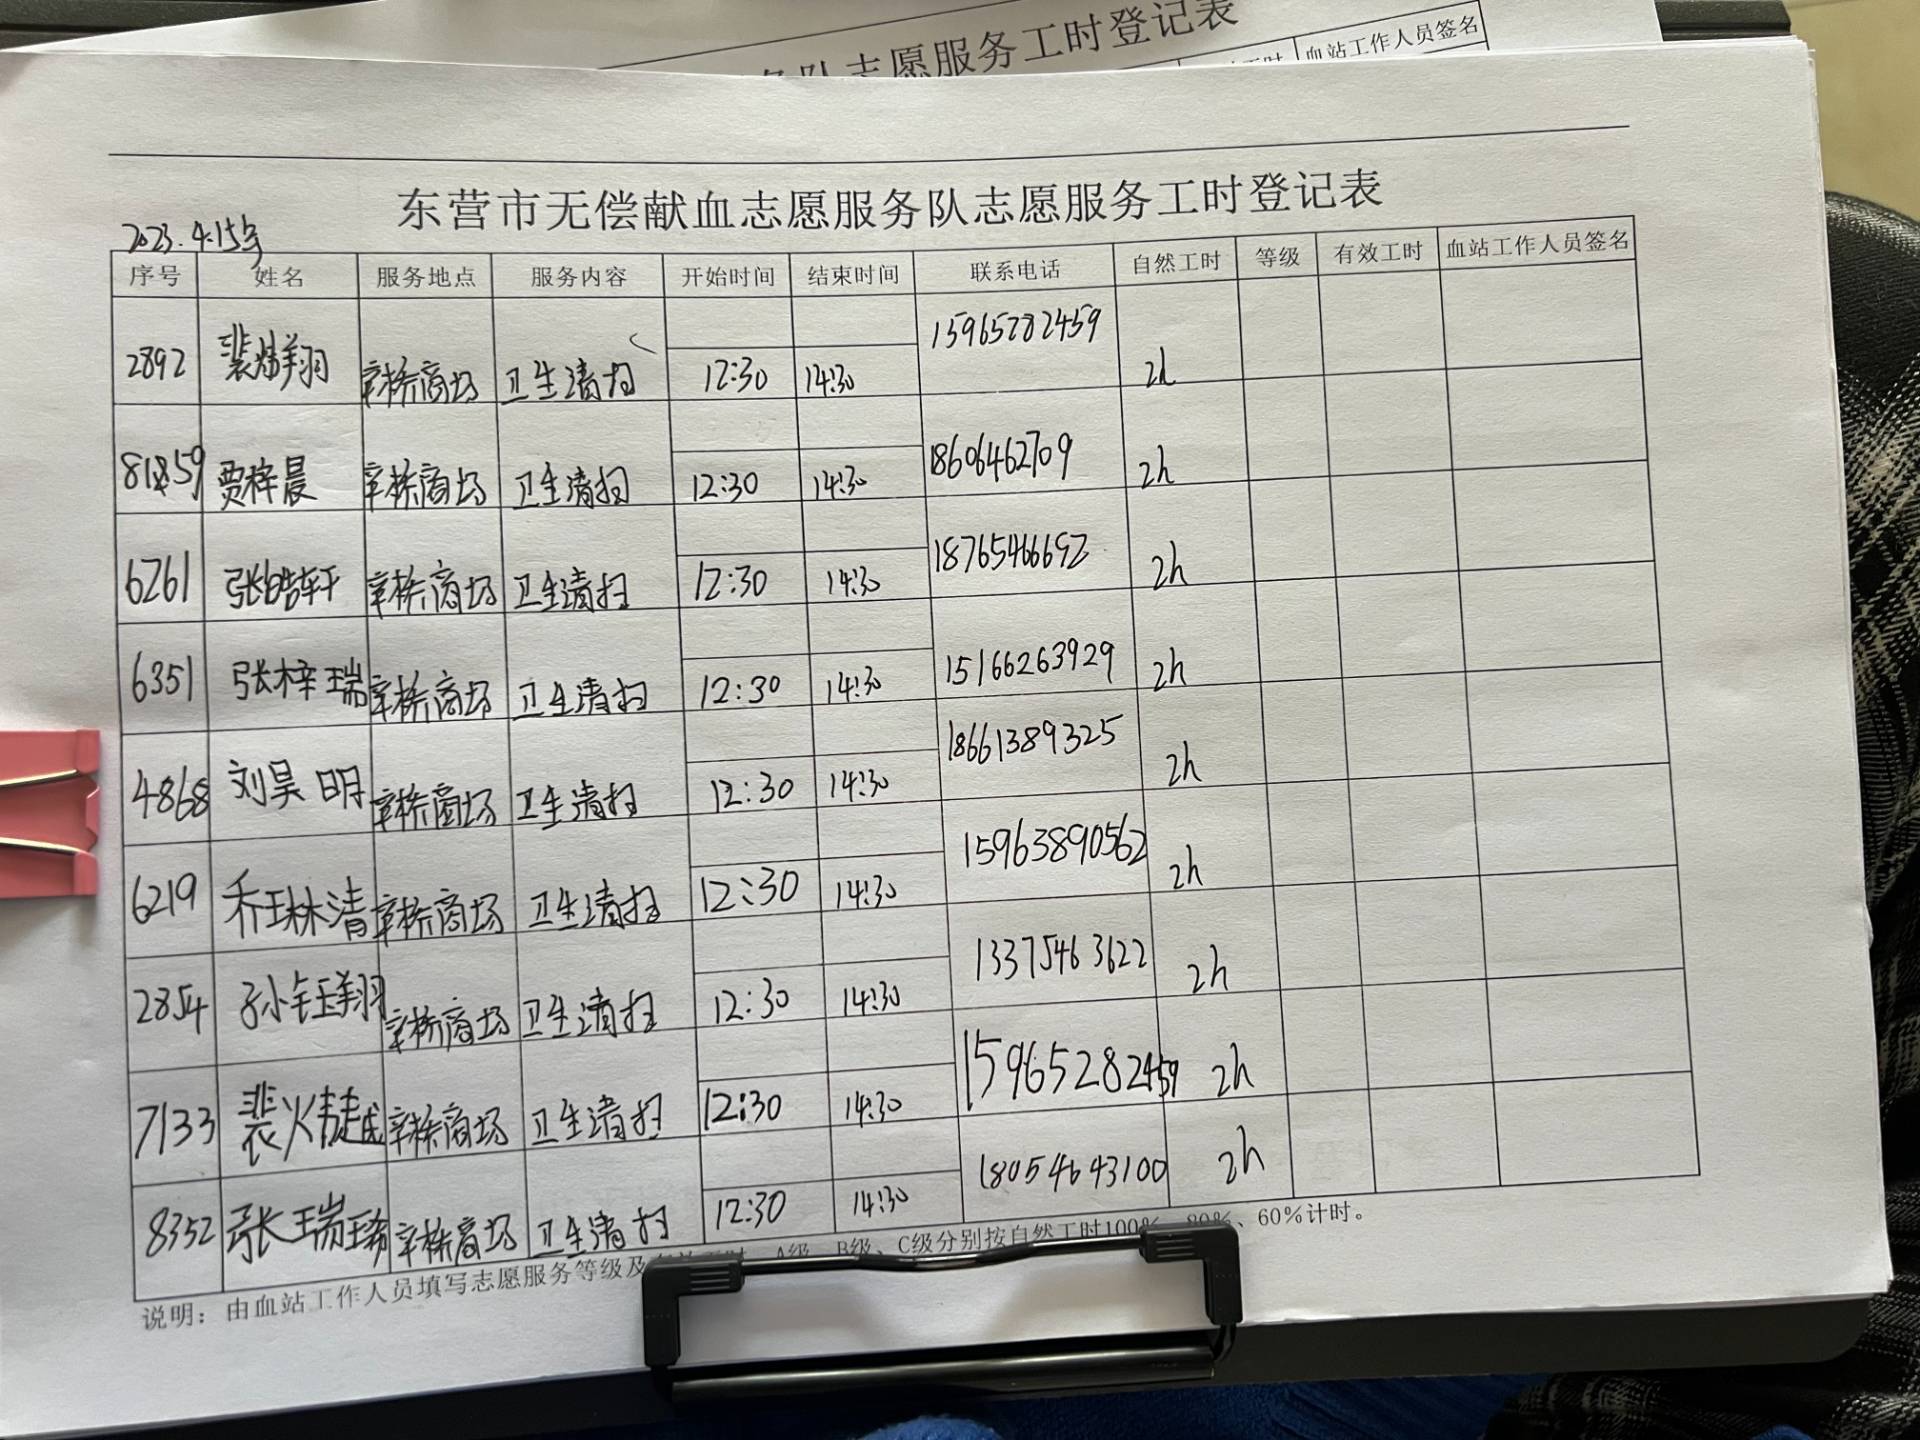 务队志愿服务工时登记表
血站工作人员签名
东营市无偿献血志愿服务队志愿服务工时登记表
2023.4.15号
序号 姓名 服务地点 服务内容 开始时间 结束时间 联系电话 自然工时 等级 有效工时 血站工作人员签名
2892 裴炳翔 辛桥商场 卫生清扫 12:30 14:30 15965282459 2h
81859 贾梓晨 辛桥商场 卫生清扫 12:30 14:30 18606462709 2h
6261 张皓轩 辛桥商场 卫生清扫 12:30 14:30 18765466692 2h
6351 张梓瑞 辛桥商场 卫生清扫 12:30 14:30 15166263929 2h
4868 刘昊明 辛桥商场 卫生清扫 12:30 14:30 18661389325 2h
6219 乔琳清 辛桥商场 卫生清扫 12:30 14:30 15963890562 2h
2854 孙钰翔 辛桥商场 卫生清扫 12:30 14:30 13375463622 2h
7133 裴 越 辛桥商场 卫生清扫 12:30 14:30 15965282459 2h
8352 张瑞 辛桥商场 卫生清扫 12:30 14:30 18054643100 2h
说明：由血站工作人员填写志愿服务等级及 A级、B级、C级分别按自然工时100%、80%、60%计时。